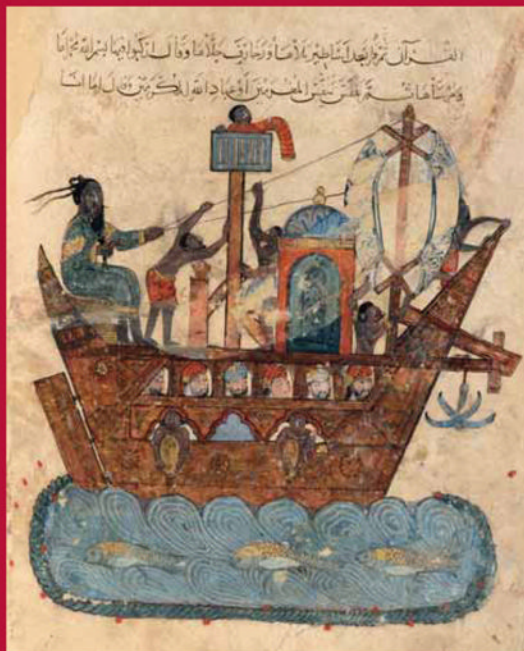 القرآن ثم قرأ بعد أساطير تلاها وزخارف جلاها وقال اركبوا فيها بسم الله مجراها
ومرساها ثم تنفس تنفس المغرمين أو عباد الله المكرمين وقال أما أنا